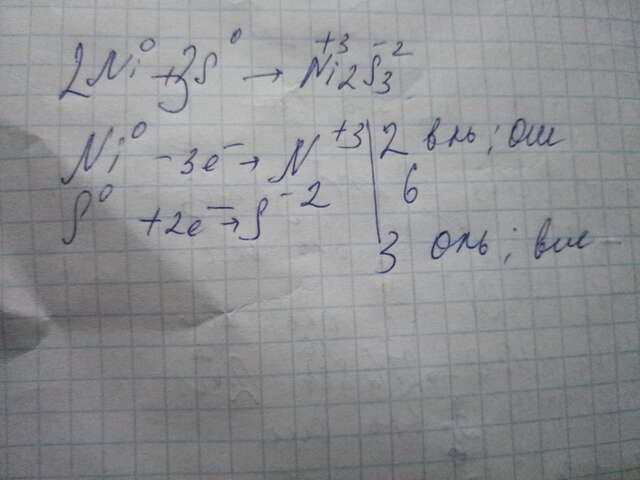 2Ni⁰ + 3S⁰ → Ni₂⁺³S₃⁻²
Ni⁰ - 3e⁻ → N⁺³ | 2 вль; ош
6
S⁰ + 2e⁻ → S⁻² | 3 оль; вие